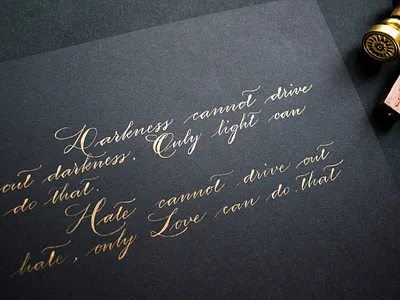 Darkness cannot drive
out darkness. Only light can
do that.
Hate cannot drive out
hate, only Love can do that